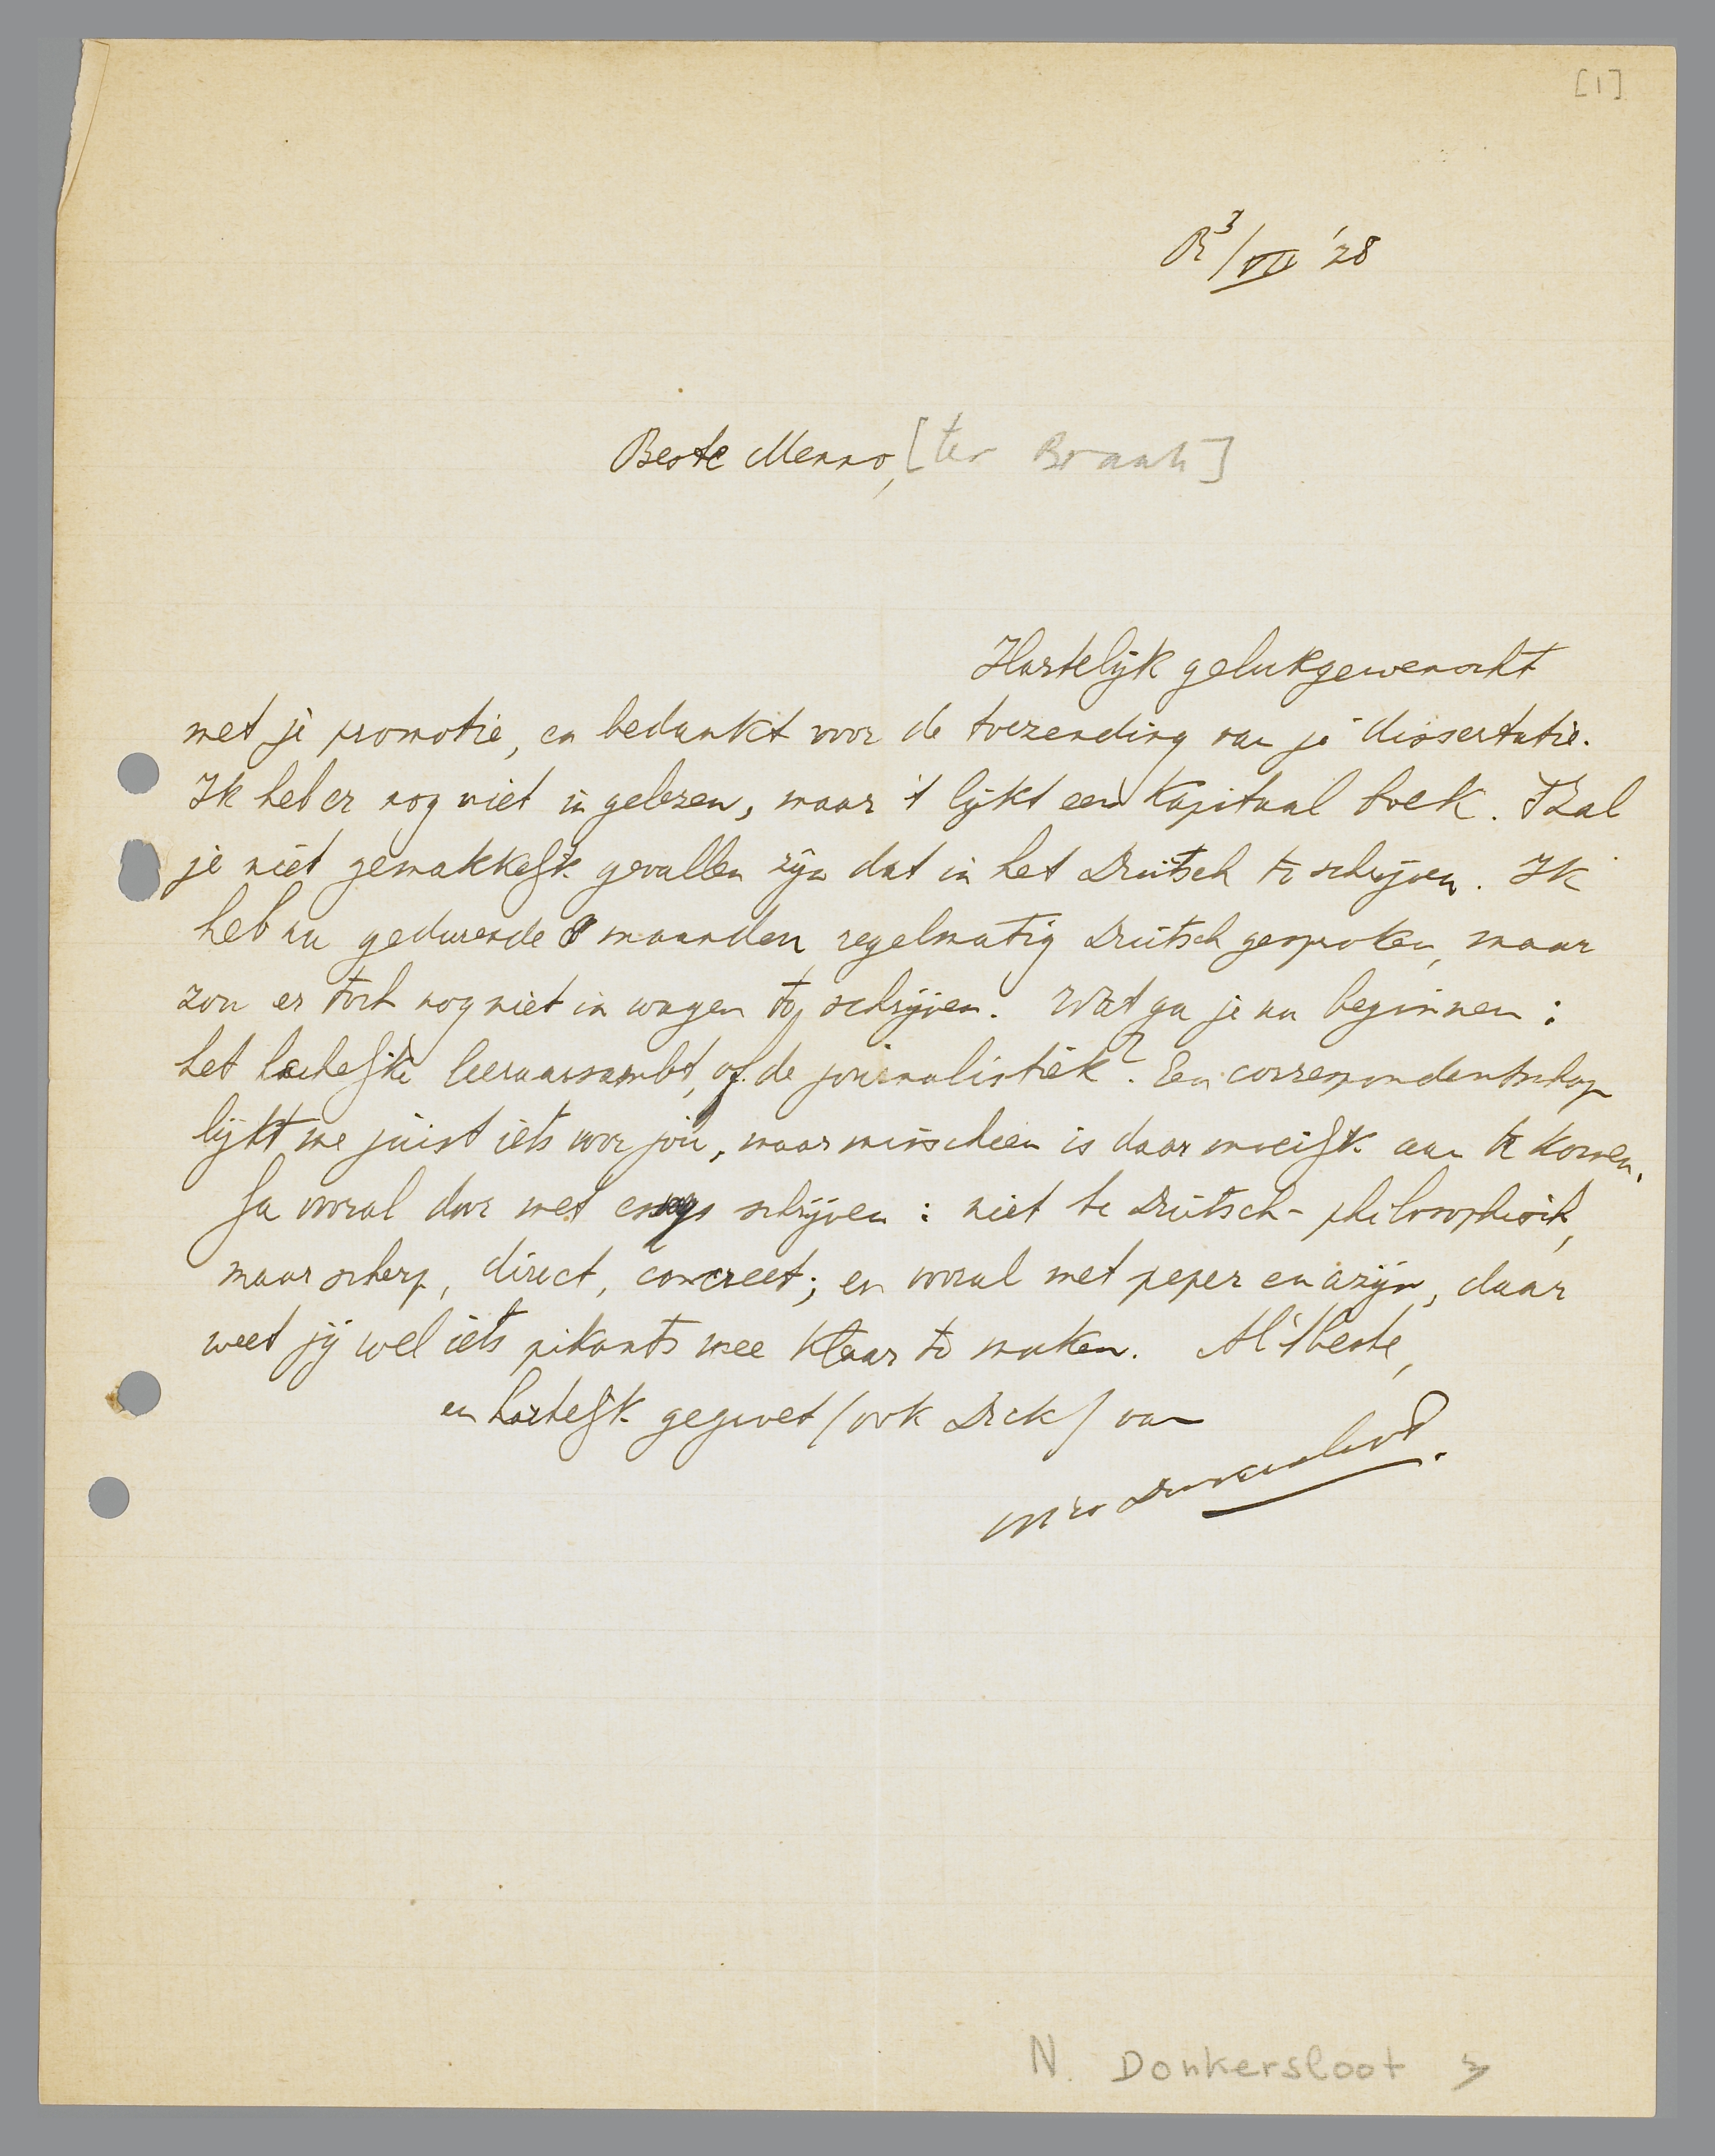 [1]
R 3/VII '28
Beste Menno, [ter Braak]
Hartelijk gelukgewenscht
met je promotie, en bedankt voor de toezending van je dissertatie.
Ik heb er nog niet in gelezen, maar 't lijkt een kapitaal boek. 't Zal
je niet gemakkelijk gevallen zijn dat in het Duitsch te schrijven. Ik
heb nu gedurende 8 maanden regelmatig Duitsch gesproken, maar
zou er toch nog niet in wagen te schrijven. Wat ga je nu beginnen:
het leeraarsambt, of de journalistiek? Een correspondentschap
lijkt me juist iets voor jou, maar misschien is daar moeilijk aan te komen.
Ga vooral door met essays schrijven: niet te Duitsch-philosophisch,
maar scherp, direct, concreet; en vooral met peper en azijn, daar
weet jij wel iets pikants mee klaar te maken. Al 't beste,
en hartelijk gegroet (ook Dick) van
Nico Donkersloot.
N. Donkersloot